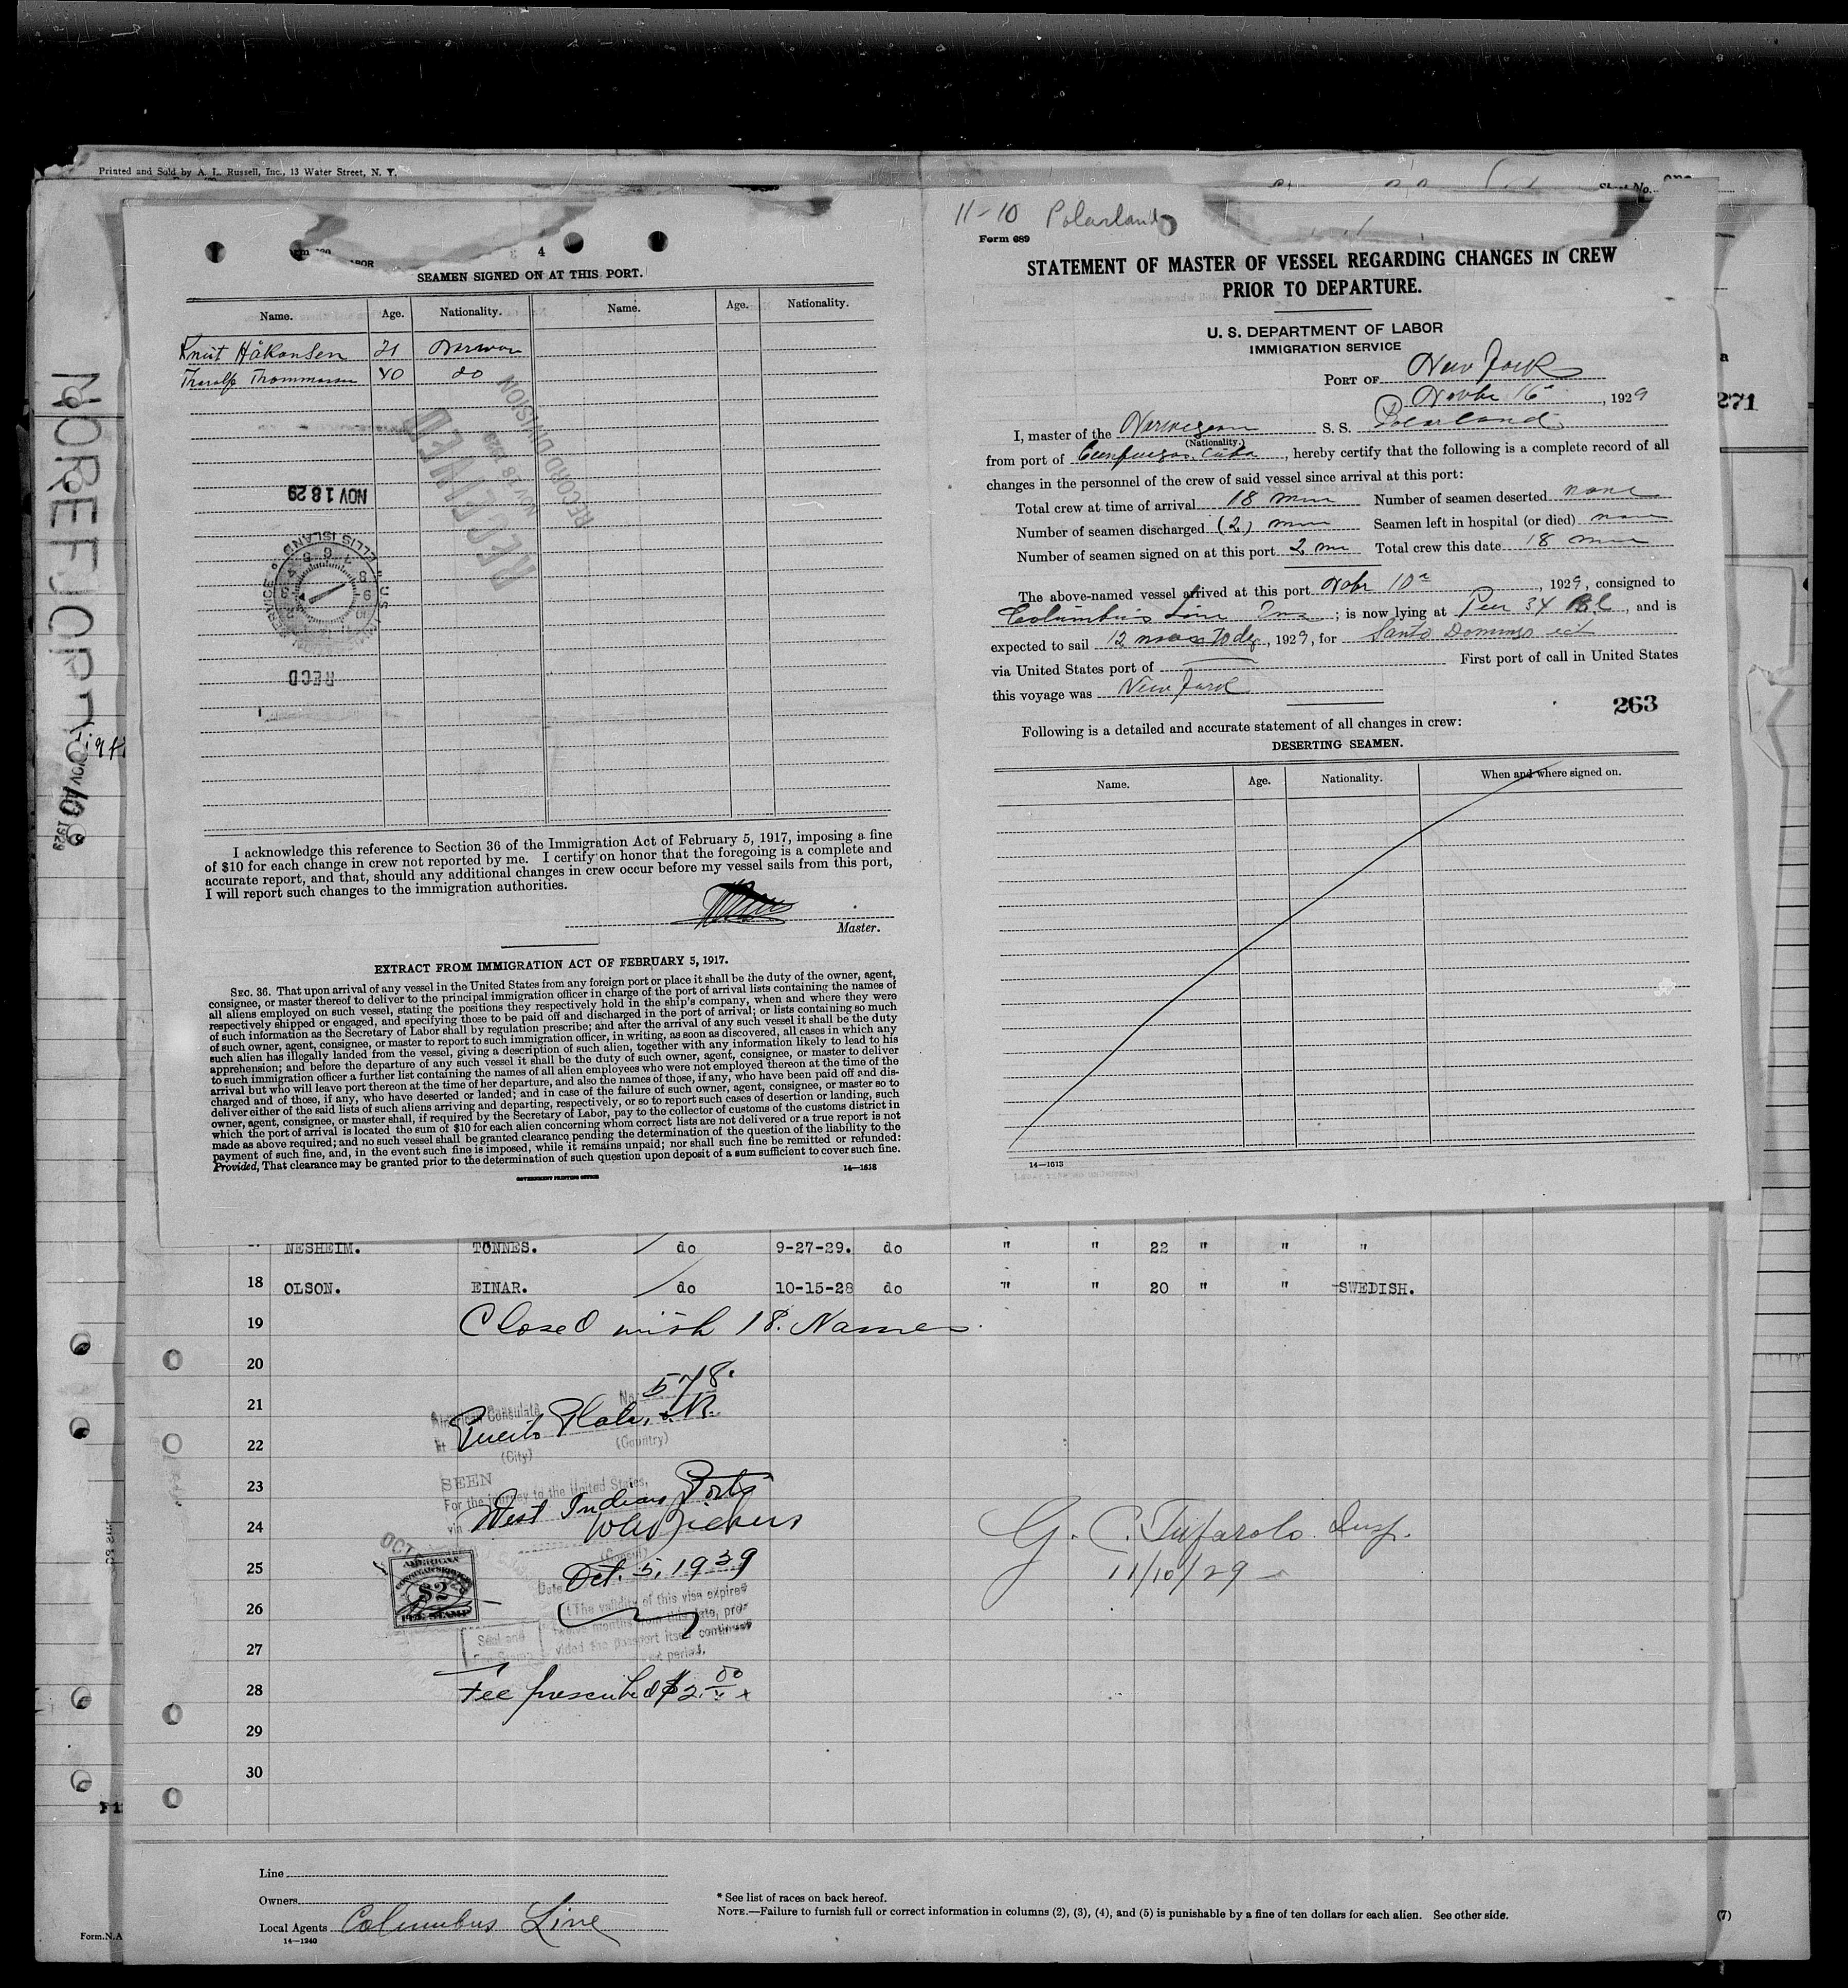 Printed and Sold by A. L. Russell, Inc., 13 Water Street, N. Y.
Sheet No.
4
SEAMEN SIGNED ON AT THIS PORT.
Name. Age. Nationality. Name. Age. Nationality.
Knut Håkonsen 21
Thoralf Thommassen 40 do
RECEIVED
NOV 18 1929
RECORD DIVISION
NOV 18 29
ELLIS ISLAND
RECD
I acknowledge this reference to Section 36 of the Immigration Act of February 5, 1917, imposing a fine
of $10 for each change in crew not reported by me. I certify on honor that the foregoing is a complete and
accurate report, and that, should any additional changes in crew occur before my vessel sails from this port,
I will report such changes to the immigration authorities.
Master.
EXTRACT FROM IMMIGRATION ACT OF FEBRUARY 5, 1917.
SEC. 36. That upon arrival of any vessel in the United States from any foreign port or place it shall be the duty of the owner, agent,
consignee, or master thereof to deliver to the principal immigration officer in charge of the port of arrival lists containing the names of
all aliens employed on such vessel, stating the positions they respectively hold in the ship's company, when and where they were
respectively shipped or engaged, and specifying those to be paid off and discharged in the port of arrival; or lists containing so much
of such information as the Secretary of Labor shall by regulation prescribe; and after the arrival of any such vessel it shall be the duty
of such owner, agent, consignee, or master to report to such immigration officer, in writing, as soon as discovered, all cases in which any
such alien has illegally landed from the vessel, giving a description of such alien, together with any information likely to lead to his
apprehension; and before the departure of any such vessel it shall be the duty of such owner, agent, consignee, or master to deliver
to such immigration officer a further list containing the names of all alien employees who were not employed thereon at the time of the
arrival but who will leave port thereon at the time of her departure, and also the names of those, if any, who have been paid off and dis-
charged and of those, if any, who have deserted or landed; and in case of the failure of such owner, agent, consignee, or master so to
deliver either of the said lists of such aliens arriving and departing, respectively, or so to report such cases of desertion or landing, such
owner, agent, consignee, or master shall, if required by the Secretary of Labor, pay to the collector of customs of the customs district in
which the port of arrival is located the sum of $10 for each alien concerning whom correct lists are not delivered or a true report is not
made as above required; and no such vessel shall be granted clearance pending the determination of the question of the liability to the
payment of such fine, and, in the event such fine is imposed, while it remains unpaid; nor shall such fine be remitted or refunded:
Provided, That clearance may be granted prior to the determination of such question upon deposit of a sum sufficient to cover such fine.
14—1613
GOVERNMENT PRINTING OFFICE
11-10 Polarland
Form 689
STATEMENT OF MASTER OF VESSEL REGARDING CHANGES IN CREW
PRIOR TO DEPARTURE.
U. S. DEPARTMENT OF LABOR
IMMIGRATION SERVICE
PORT OF New York
Novbr 16, 1929
I, master of the Norwegian S. S. Polarland
(Nationality.)
from port of Cienfuegos, Cuba, hereby certify that the following is a complete record of all
changes in the personnel of the crew of said vessel since arrival at this port:
Total crew at time of arrival 18 men Number of seamen deserted none
Number of seamen discharged (2) men Seamen left in hospital (or died) none
Number of seamen signed on at this port 2 men Total crew this date 18 men
The above-named vessel arrived at this port Nobr 10, 1929, consigned to
Columbus Line Inc; is now lying at Pier 34, and is
expected to sail 12 noon today, 1929, for Santo Domingo
via United States port of First port of call in United States
this voyage was New York
263
Following is a detailed and accurate statement of all changes in crew:
DESERTING SEAMEN.
Name. Age. Nationality. When and where signed on.
14—1613
271
NESHEIM. TONNES. do 9-27-29. do " " 22 " " "
18 OLSON. EINAR. do 10-15-28 do " " 20 " " SWEDISH.
19 Closed with 18. Names.
20
No. 578.
21 American Consulate
at Puerto Plata, D.R.
22 (City) (Country)
23 SEEN
For the journey to the United States,
via West Indian Ports
24
G. C. Tufarolo Insp.
11/10/29
25 Date Oct. 5, 1929
AMERICAN
CONSULAR SERVICE
$2
FEE STAMP
26 (The validity of this visa expires
twelve months from this date, pro-
27 vided the passport itself continues
Seal and
28 Fee prescribed $2.00
29
30
Line
Owners
Local Agents Columbus Line
14—1240
* See list of races on back hereof.
NOTE.—Failure to furnish full or correct information in columns (2), (3), (4), and (5) is punishable by a fine of ten dollars for each alien. See other side.
(7)
Form.N.A